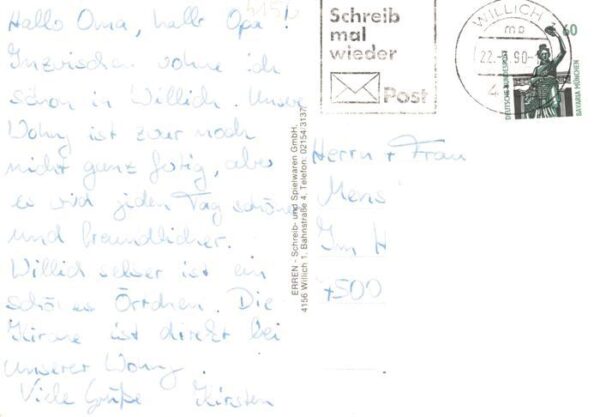 Hallo Oma, hallo Opa!
Inzwischen wohne ich
schon in Willich. Unser
Wohng ist zwar noch
nicht ganz fertig, aber
es wird jeden Tag schöner
und freundlicher.
Willich selber ist ein
schönes Örtchen. Die
Kirche ist direkt bei
unserer Wohng.
Viele Grüße Kirsten
ERREN - Schreib- und Spielwaren GmbH,
4156 Willich 1, Bahnstraße 4, Telefon: 02154/3137
Schreib
mal
wieder
Post
WILLICH
mb
22.-
90-
4
60
DEUTSCHE BUNDESPOST
BAVARIA MÜNCHEN
Herrn + Frau
Mens
Im H
7500